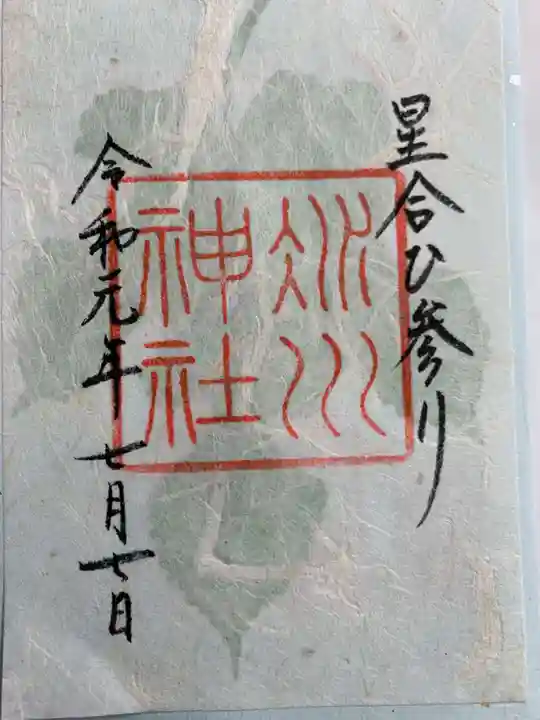 星合ひ參り
冰川
神社
令和元年七月七日